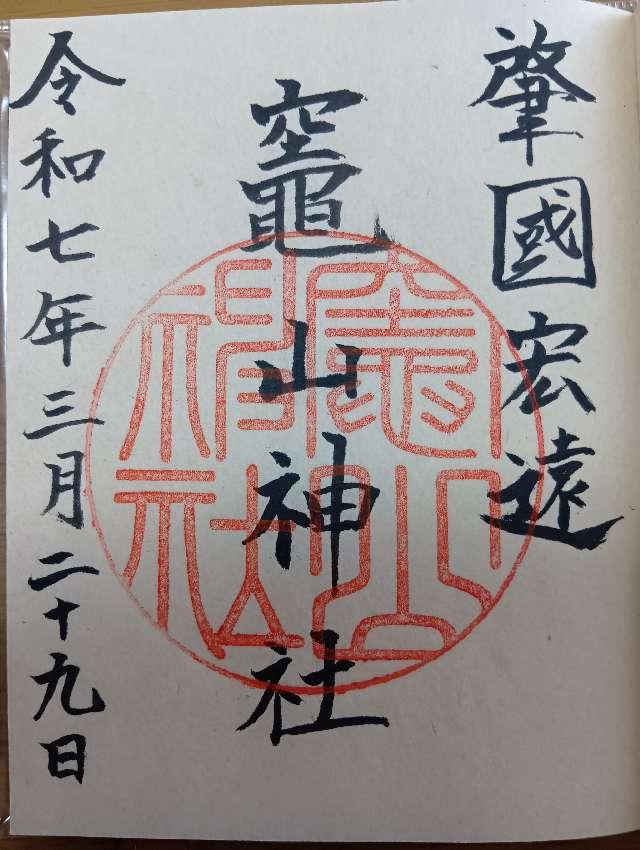 肇國宏遠
竈山神社
令和七年三月二十九日
竈山神社